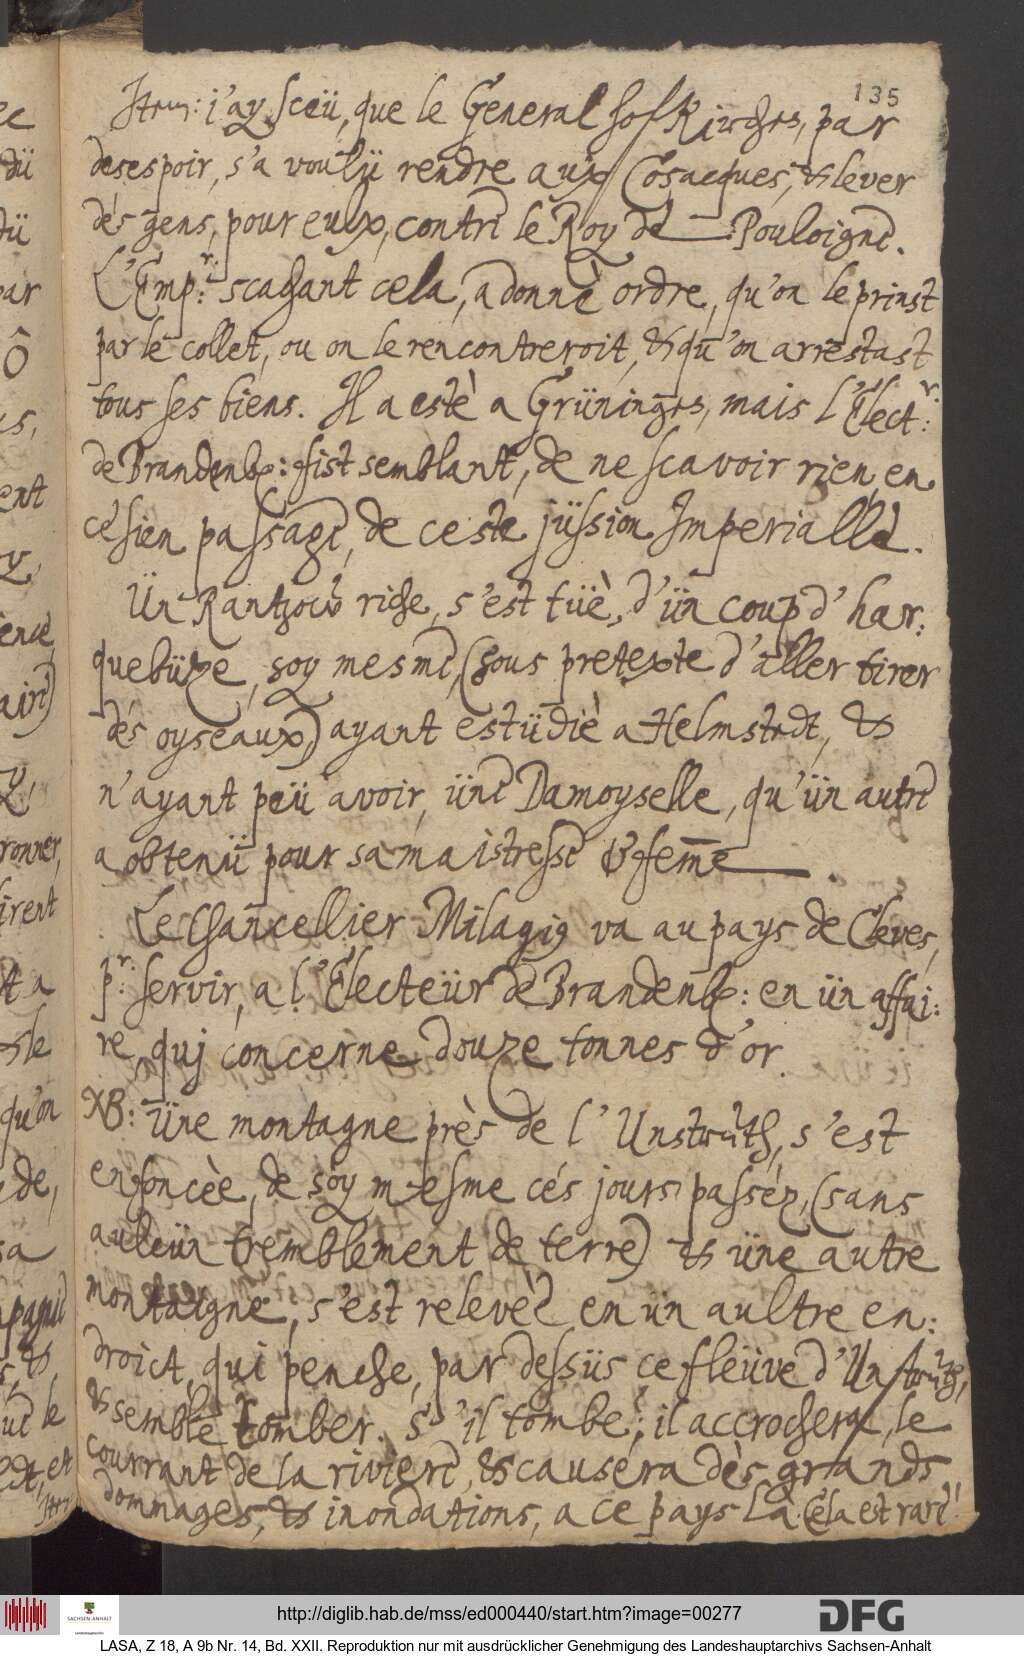 135
Item: j'ay sceü, que le General Hofkirchen, par
desespoir, s'a voulü rendre aux Cosacques, & lever
dés gens, pour eux, contre le Roy de Pouloigne.
L'Emp:r scachant cela, a donnè ordre, qu'on le prinst
par le collet, ou on le rencontreroit, & qu'on arrestast
tous ses biens. Il a estè a Grüningen, mais l'Elect:r
de Brandenb: fist semblant, de ne scavoir rien, en
ce sien passage, de ceste jüssion Imperialle.
Ün Rantzow riche, s'est tüè, d'ün coup d'har:
quebüze, soy mesme, (sous pretexte d'aller tirer
dés oyseaux,) ayant estüdiè a Helmstedt, &
n'ayant peü avoir, üne Damoyselle, qu'ün autre
a obtenü pour sa maistresse & feme.
Le Chancellier Milagius va au pays de Cleves,
p:r servir, a l'Electeür de Brandenb: en ün affai:
re, quj concerne douze tonnes d'or.
NB: Üne montagne près de l'Unstruth, s'est
enfoncèe, de soy mesme cés jours passèz, (sans
auleün tremblement de terre) & üne autre
montaigne, s'est relevèe en ün aultre en:
droict, qui penche, par dessüs ce fleüve d'Unstruth,
& semble tomber. S'il tombe, il accrochera, le
courrant de la riviere, & causera dès grands
dommages, & inondations, a ce pays là. Cela est rare!
ec
dü
dü
par
Ô
ent
ence
aire)
ronner,
irent
t a
le
qu'on
de,
sa
& 
le
et
Item
http://diglib.hab.de/mss/ed000440/start.htm?image=00277
SACHSEN-ANHALT
DFG
LASA, Z 18, A 9b Nr. 14, Bd. XXII. Reproduktion nur mit ausdrücklicher Genehmigung des Landeshauptarchivs Sachsen-Anhalt